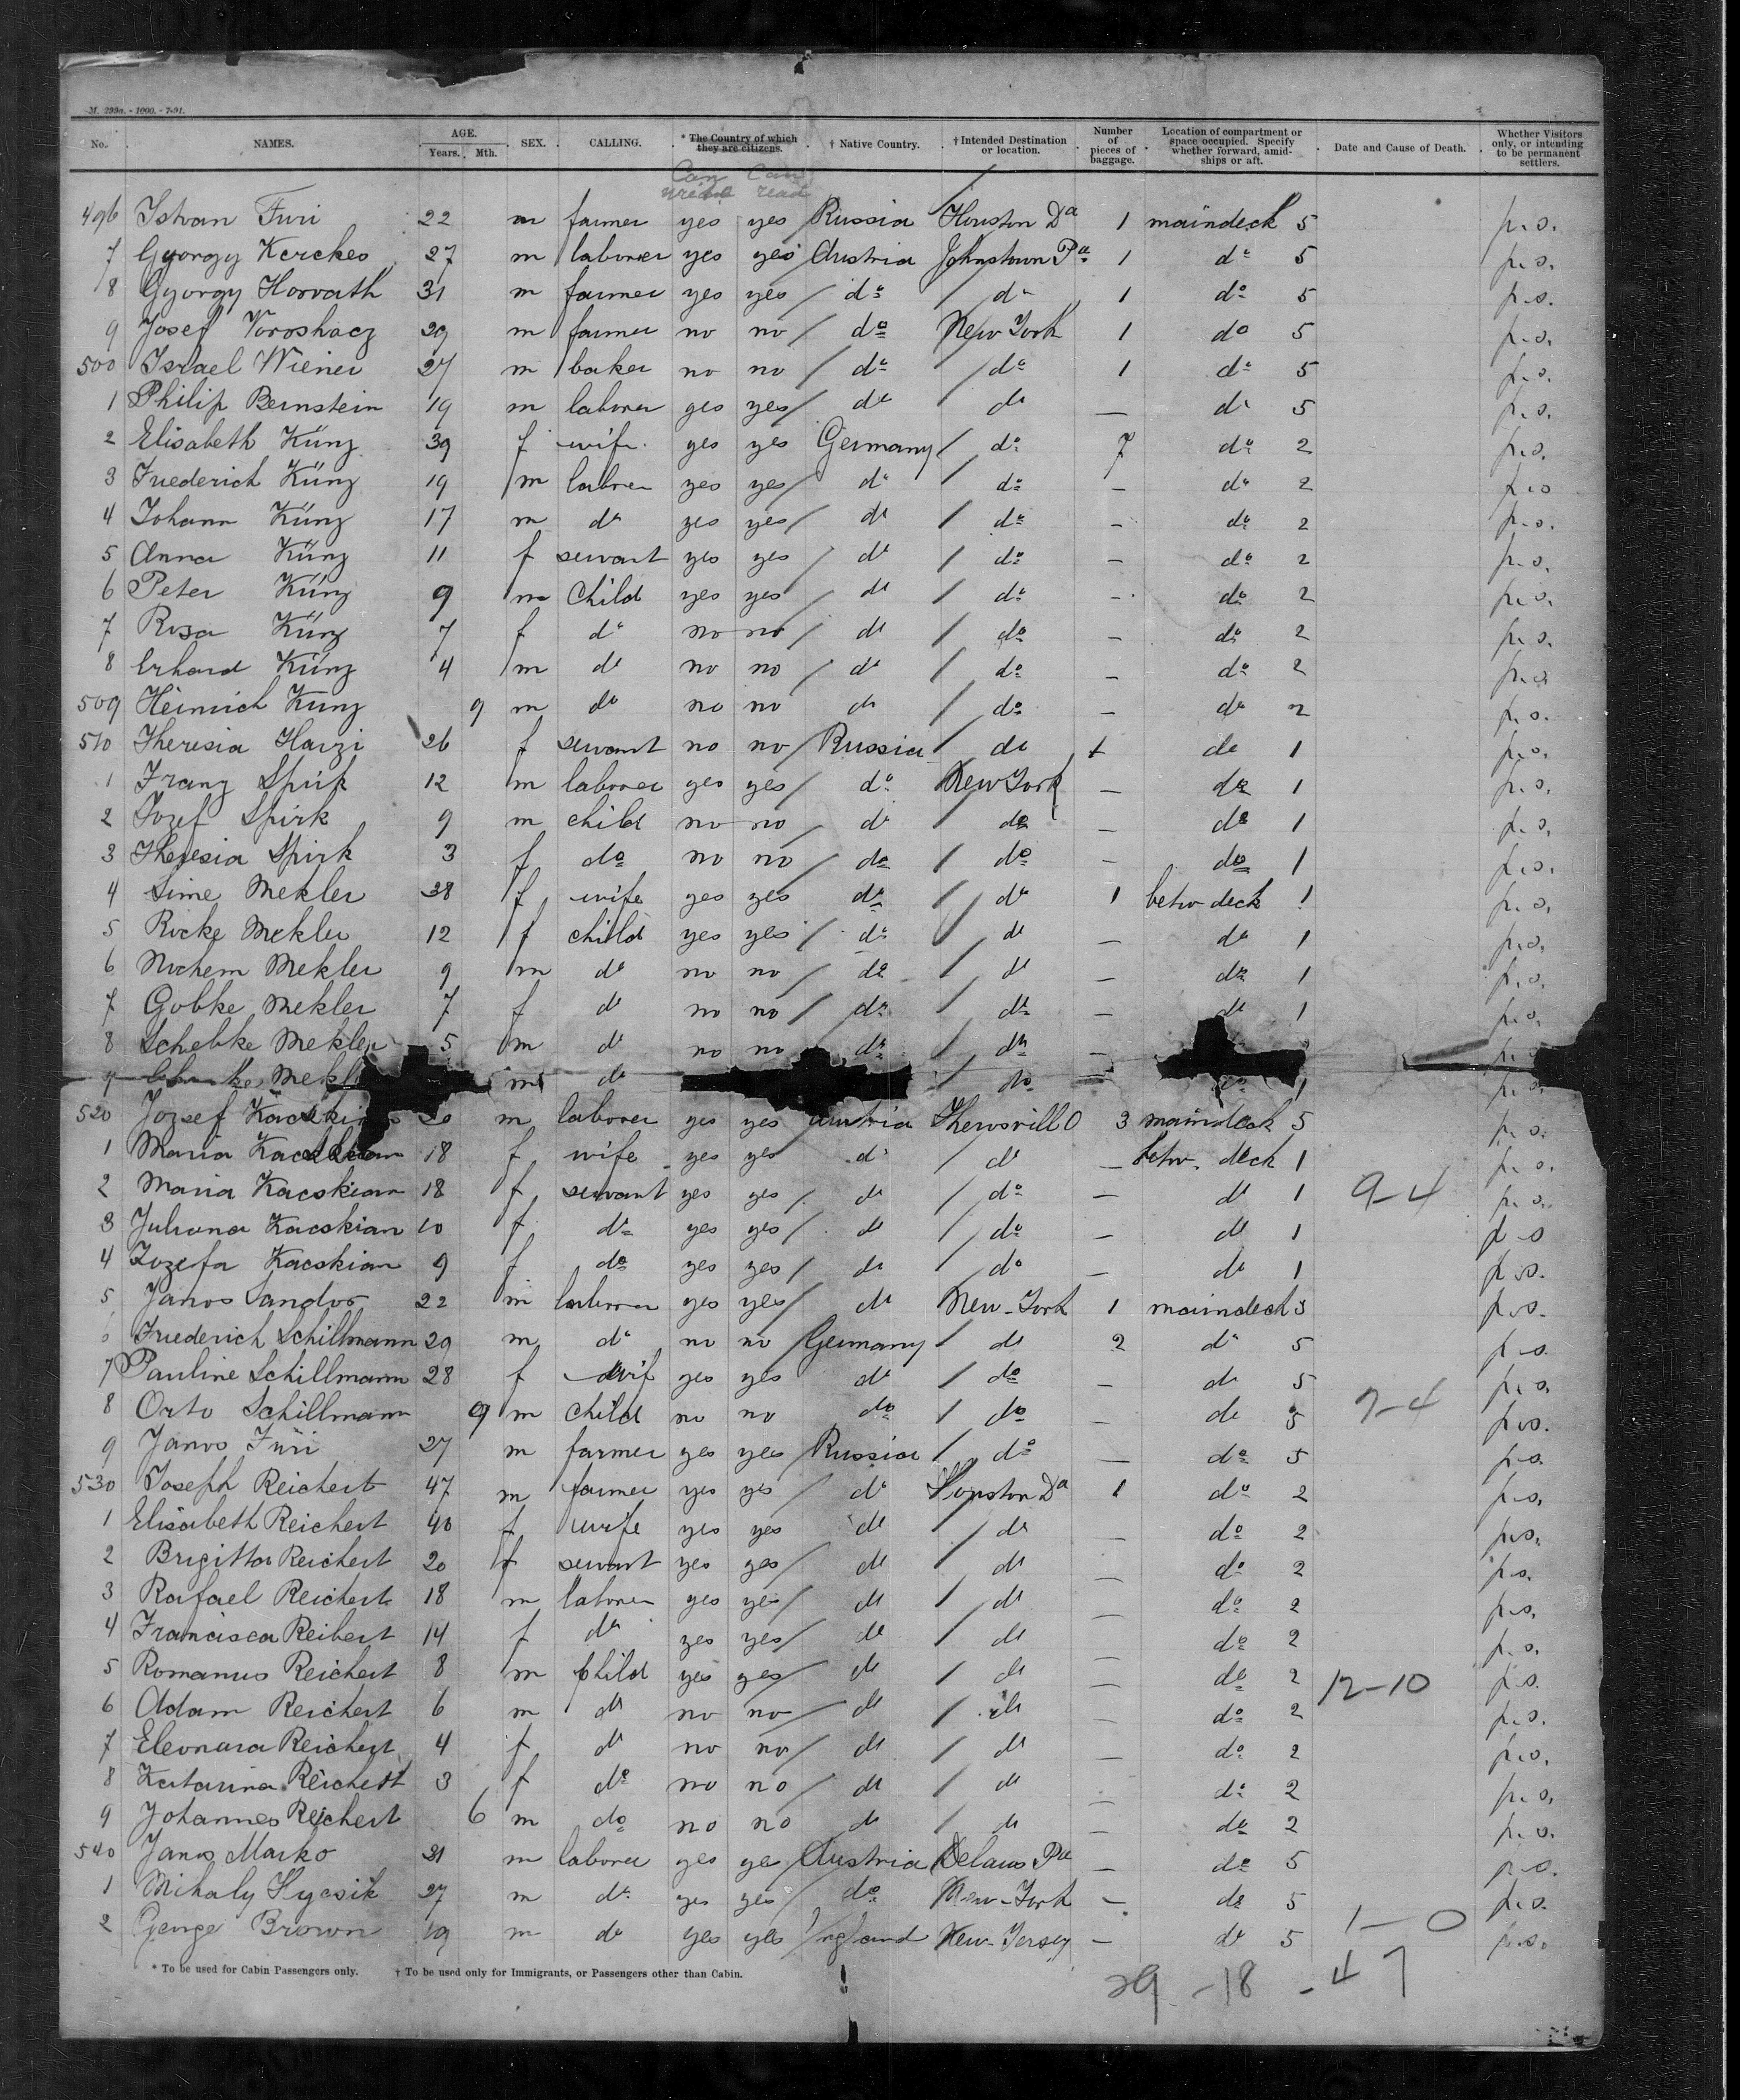 M. 299a. - 1000. - 7-91.
No. NAMES. AGE. Years. Mth. SEX. CALLING. * The Country of which they are citizens. † Native Country. † Intended Destination or location. Number of pieces of baggage. Location of compartment or space occupied. Specify whether forward, amidships or aft. Date and Cause of Death. Whether Visitors only, or intending to be permanent settlers.
Can write Can read
496 Istvan Furi 22 m farmer yes yes Russia Houston Da 1 maindeck 5 p.s.
7 Gyorgy Kerekes 27 m laborer yes yes Austria Johnstown Pa 1 do 5 p.s.
8 Gyorgy Horvath 31 m farmer yes yes do do 1 do 5 p.s.
9 Josef 29 m farmer no no do New York 1 do 5 p.s.
500 Israel Wiener 27 m baker no no do do 1 do 5 p.s.
1 Philip Bernstein 19 m laborer yes yes do do — do 5 p.s.
2 Elisabeth Künz 39 f wife yes yes Germany do 7 do 2 p.s.
3 Friederich Künz 19 m laborer yes yes do do — do 2 p.s
4 Johann Künz 17 m do yes yes do do — do 2 p.s.
5 Anna Künz 11 f servant yes yes do do — do 2 p.s.
6 Peter Künz 9 m child yes yes do do — do 2 p.s.
7 Rosa Künz 7 f do no no do do — do 2 p.s.
8 Erhard Künz 4 m do no no do do — do 2 p.s
509 Heinrich Kunz 9 m do no no do do — do 2 p.s.
510 Theresia Harzi 26 f servant no no Russia do 1 do 1 p.s.
1 Franz Spirk 12 m laborer yes yes do New York — do 1 p.s.
2 Jozef Spirk 9 m child no no do do — do 1 p.s.
3 Theresia Spirk 3 f do no no do do — do 1 p.s.
4 Sime Mekler 38 f wife yes yes do do 1 betw deck 1 p.s.
5 Rocke Mekler 12 f child yes yes do do — do 1 p.s.
6 Nochem Mekler 9 m do no no do do — do 1 p.s.
7 Gobke Mekler 7 f do no no do do — do 1 p.s.
8 Schebke Mekler 5 m do no no do do — p.s
9 m do do — do 1 p.s.
520 Jozsef laborer m yes yes Austria 3 maindeck 5 p.s.
1 Maria 18 f wife yes yes do do — betw. deck 1 p.s.
2 Maria Kacskian 18 f servant yes yes do do — do 1 9-4 p.s.
3 Juliana Kacskian 10 f do yes yes do do — do 1 p.s
4 Jozefa Kacskian 9 f do yes yes do do — do 1 p.s.
5 Janos Sandor 22 m laborer yes yes do New-York 1 maindeck 3 p.s.
6 Friederich Schillmann 29 m do no no Germany do 2 do 5 p.s.
7 Pauline Schillmann 28 f wif yes yes do do — do 5 p.s.
8 Orto Schillmann 9 m child no no do do — do 5 7-4 p.s.
9 Janos Füri 27 m farmer yes yes Russia do — do 5 p.s.
530 Joseph Reichert 47 m farmer yes yes do Houston Da 1 do 2 p.s.
1 Elisabeth Reichert 40 f wife yes yes do do — do 2 p.s.
2 Brigitta Reichert 20 f servant yes yes do do — do 2 p.s.
3 Rafael Reichert 18 m laborer yes yes do do — do 2 p.s.
4 Francisca Reihert 14 f do yes yes do do — do 2 p.s.
5 Romanus Reichert 8 m child yes yes do do — do 2 12-10 p.s.
6 Adam Reichert 6 m do no no do do — do 2 p.s.
7 Eleonara Reichert 4 f do no no do do — do 2 p.s.
8 Katarina Reichert 3 f do no no do do — do 2 p.s.
9 Johannes Reichert 6 m do no no do do — do 2 p.s.
540 Janos Marko 31 m laborer yes yes Austria Delaws Pa — do 5 p.s.
1 Mihaly Hycsik 27 m do yes yes do New-York — do 5 p.s.
2 George Brown 19 m do yes yes England New-Jersey — do 5 1-0 p.s.
* To be used for Cabin Passengers only. † To be used only for Immigrants, or Passengers other than Cabin.
29 - 18 - 47